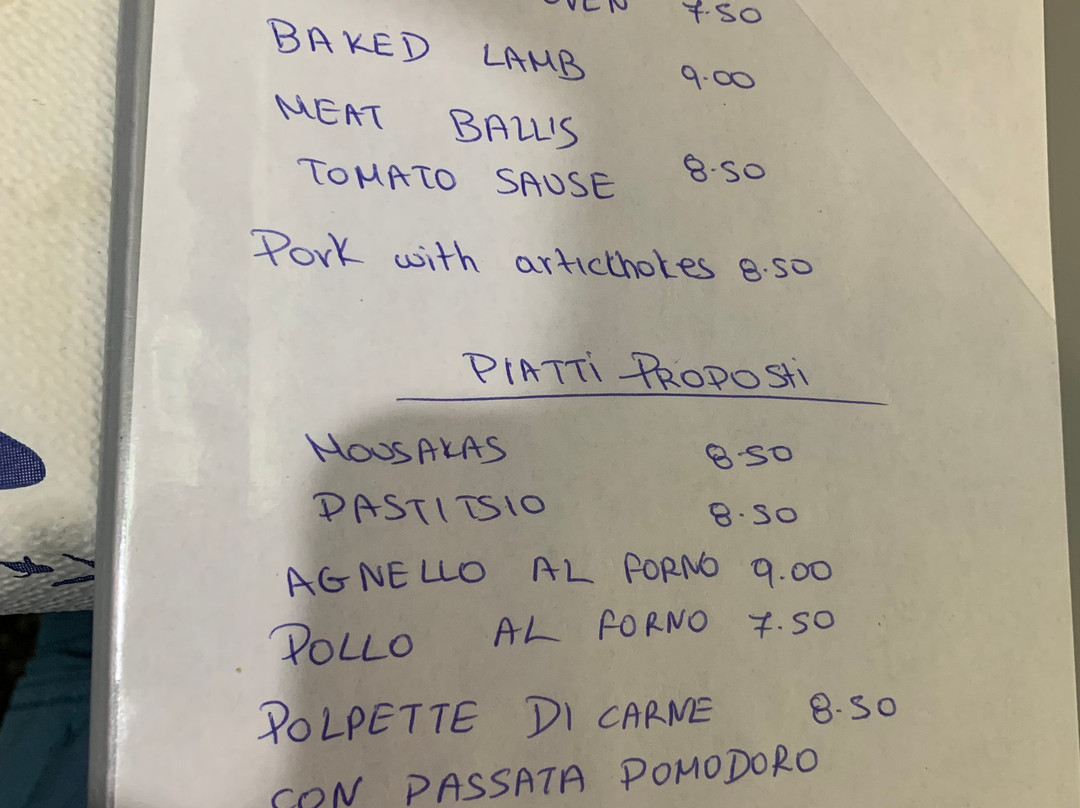 OVEN 7.50
BAKED LAMB 9.00
MEAT BALLIS
TOMATO SAUSE 8.50
Pork with articthokes 8.50
PIATTi PROPOSti
MOUSAKAS 8.50
PASTITSIO 8.50
AGNELLO AL FORNO 9.00
POLLO AL FORNO 7.50
POLPETTE DI CARNE 8.50
CON PASSATA POMODORO